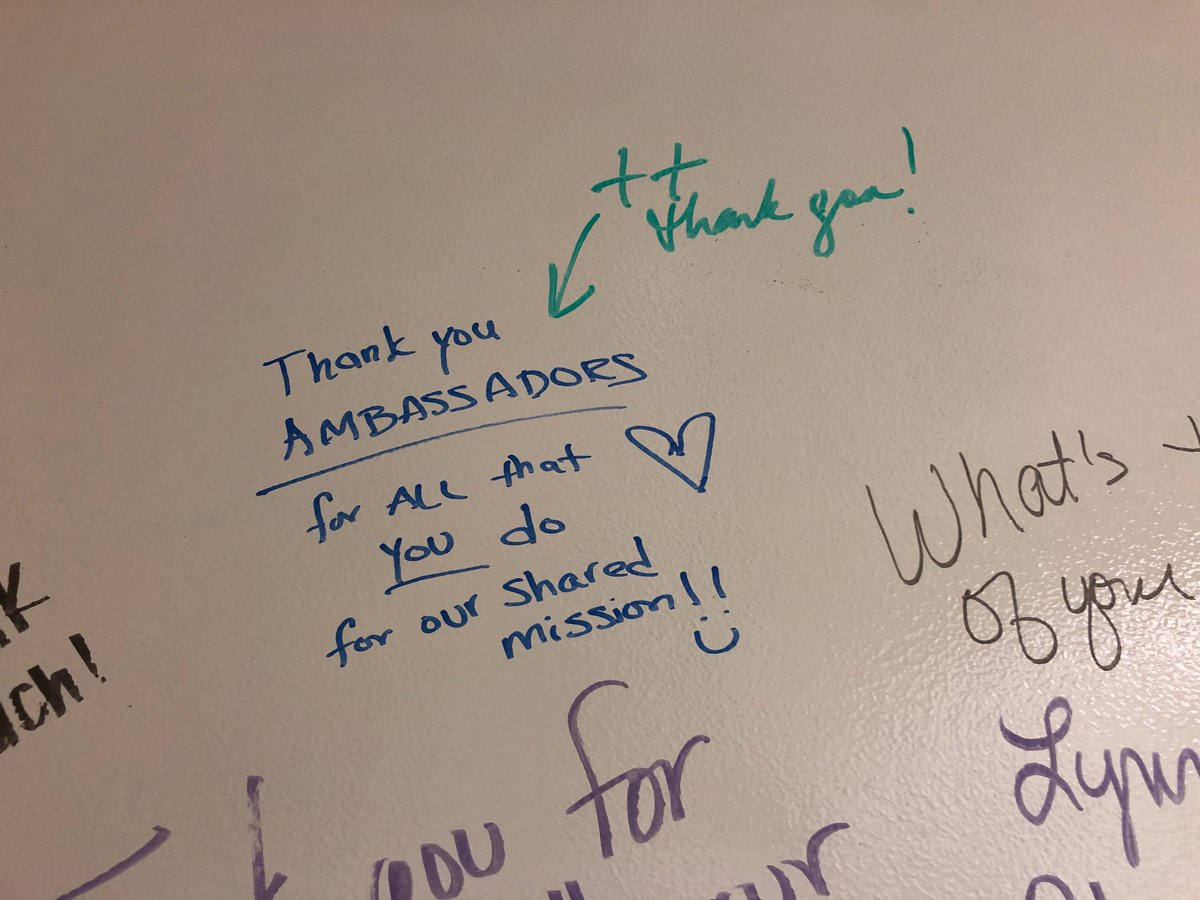 ++
thank you!
Thank you
AMBASSADORS
for ALL that
YOU do
for our shared
mission!!
What's
of your
you for